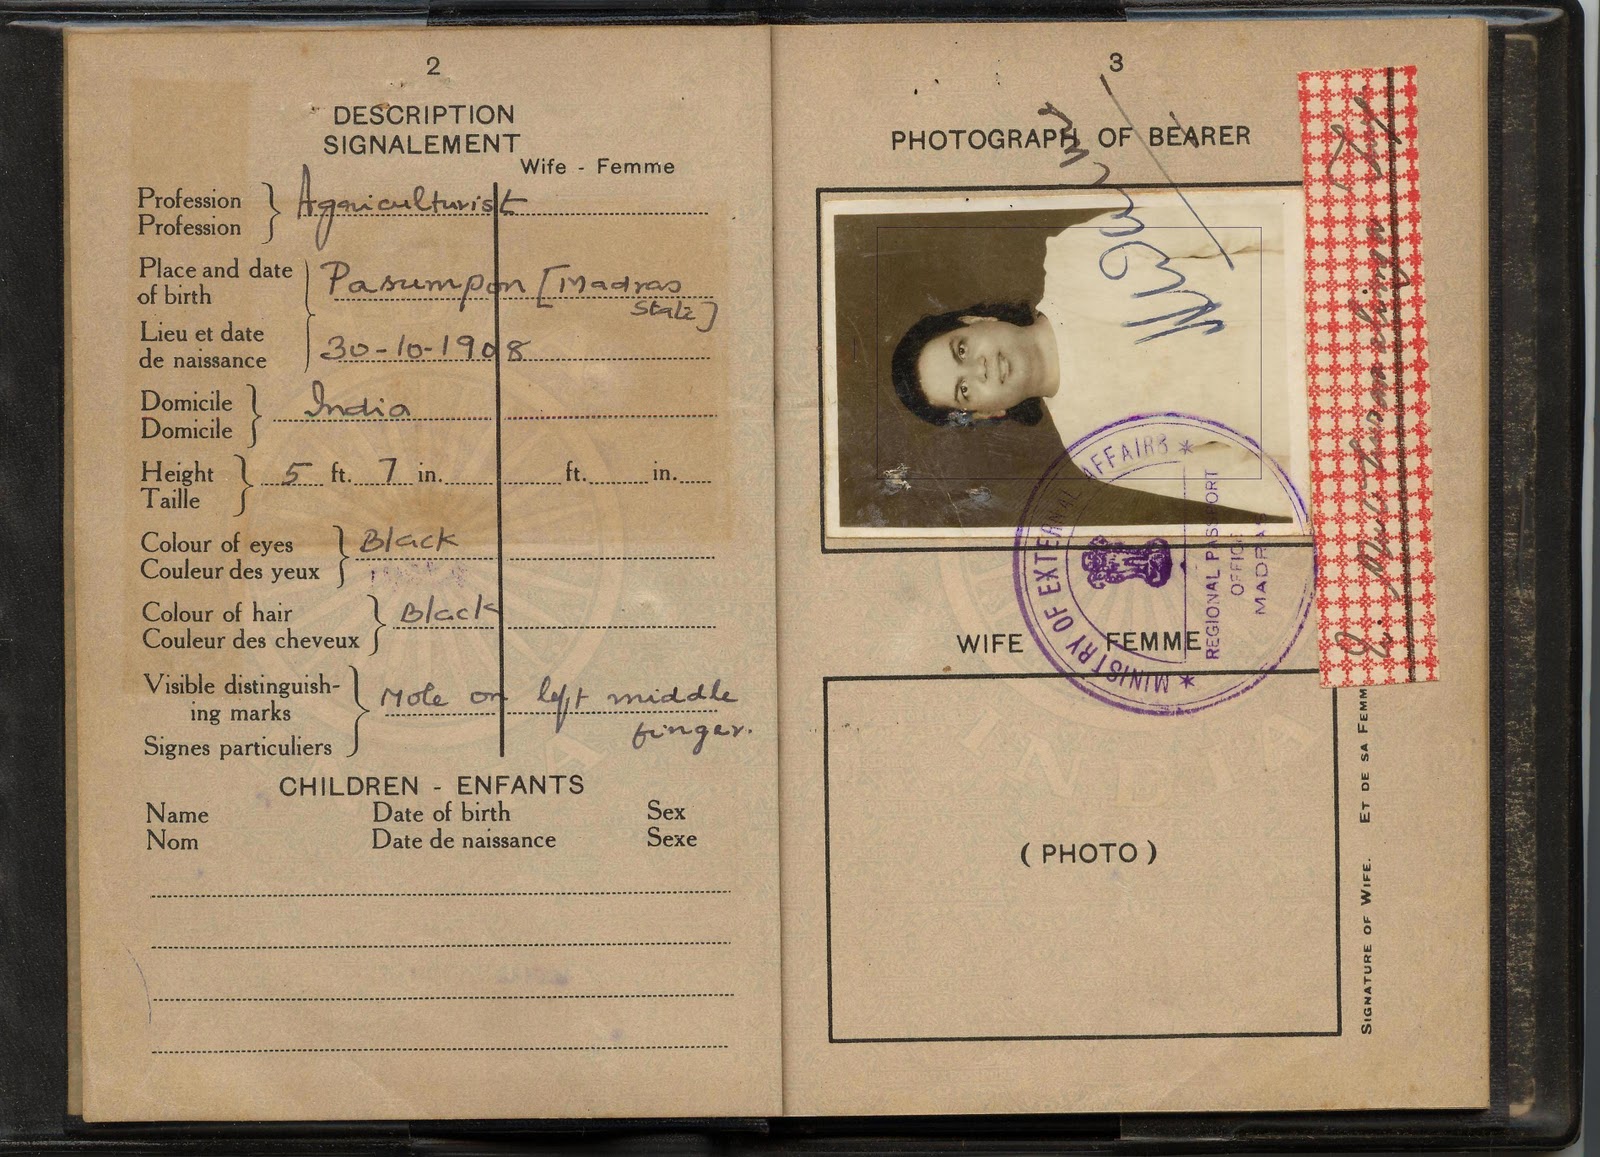 2
DESCRIPTION
SIGNALEMENT
Wife - Femme
Profession
Profession
Agriculturist
Place and date
of birth
Pasumpon [Madras
State]
Lieu et date
de naissance
30-10-1908
Domicile
Domicile
India
Height
Taille
5 ft. 7 in.
ft. in.
Colour of eyes
Couleur des yeux
Black
Colour of hair
Couleur des cheveux
Black
Visible distinguish-
ing marks
Signes particuliers
Mole on left middle
finger.
CHILDREN - ENFANTS
Name Date of birth Sex
Nom Date de naissance Sexe
3
PHOTOGRAPH OF BEARER
* MINISTRY OF EXTERNAL AFFAIRS *
REGIONAL PASSPORT
OFFICE
MADRAS
WIFE FEMME
(PHOTO)
INDIA
SIGNATURE OF WIFE. ET DE SA FEMM